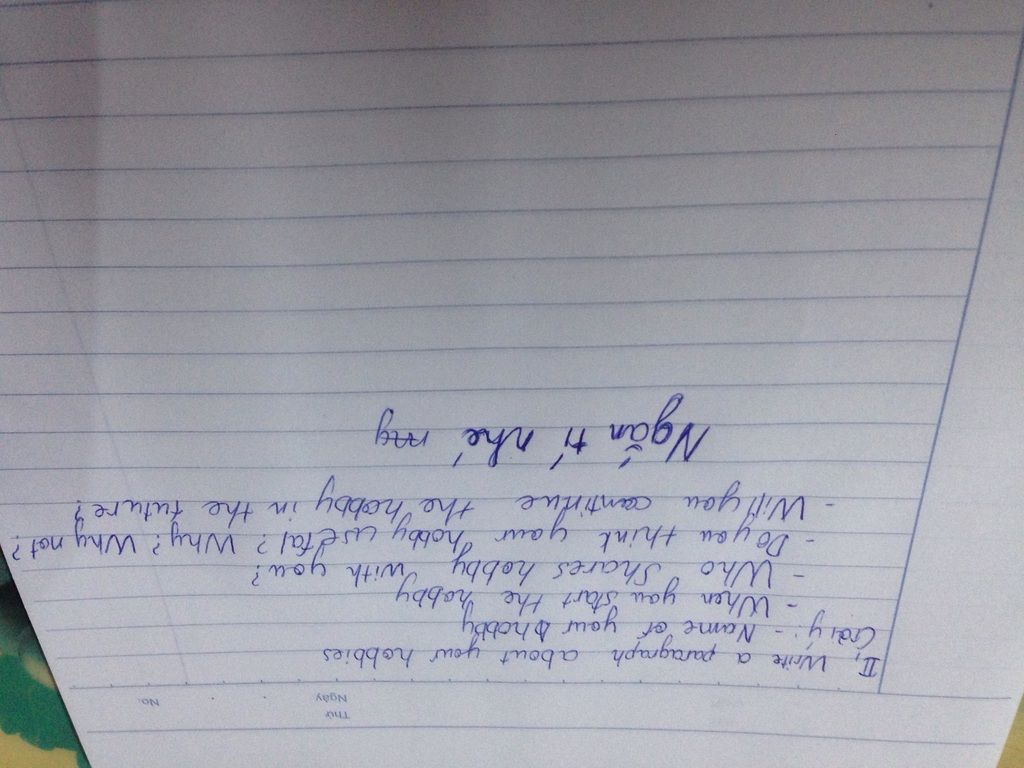 Thứ
Ngày
No.
II, Write a paragraph about your hobbies
Gợi ý: - Name of your hobby
- When you start the hobby
- Who shares hobby with you?
- Do you think your hobby useful? Why? Why not?
- Will you continue the hobby in the future?
Ngắn tí nhé my